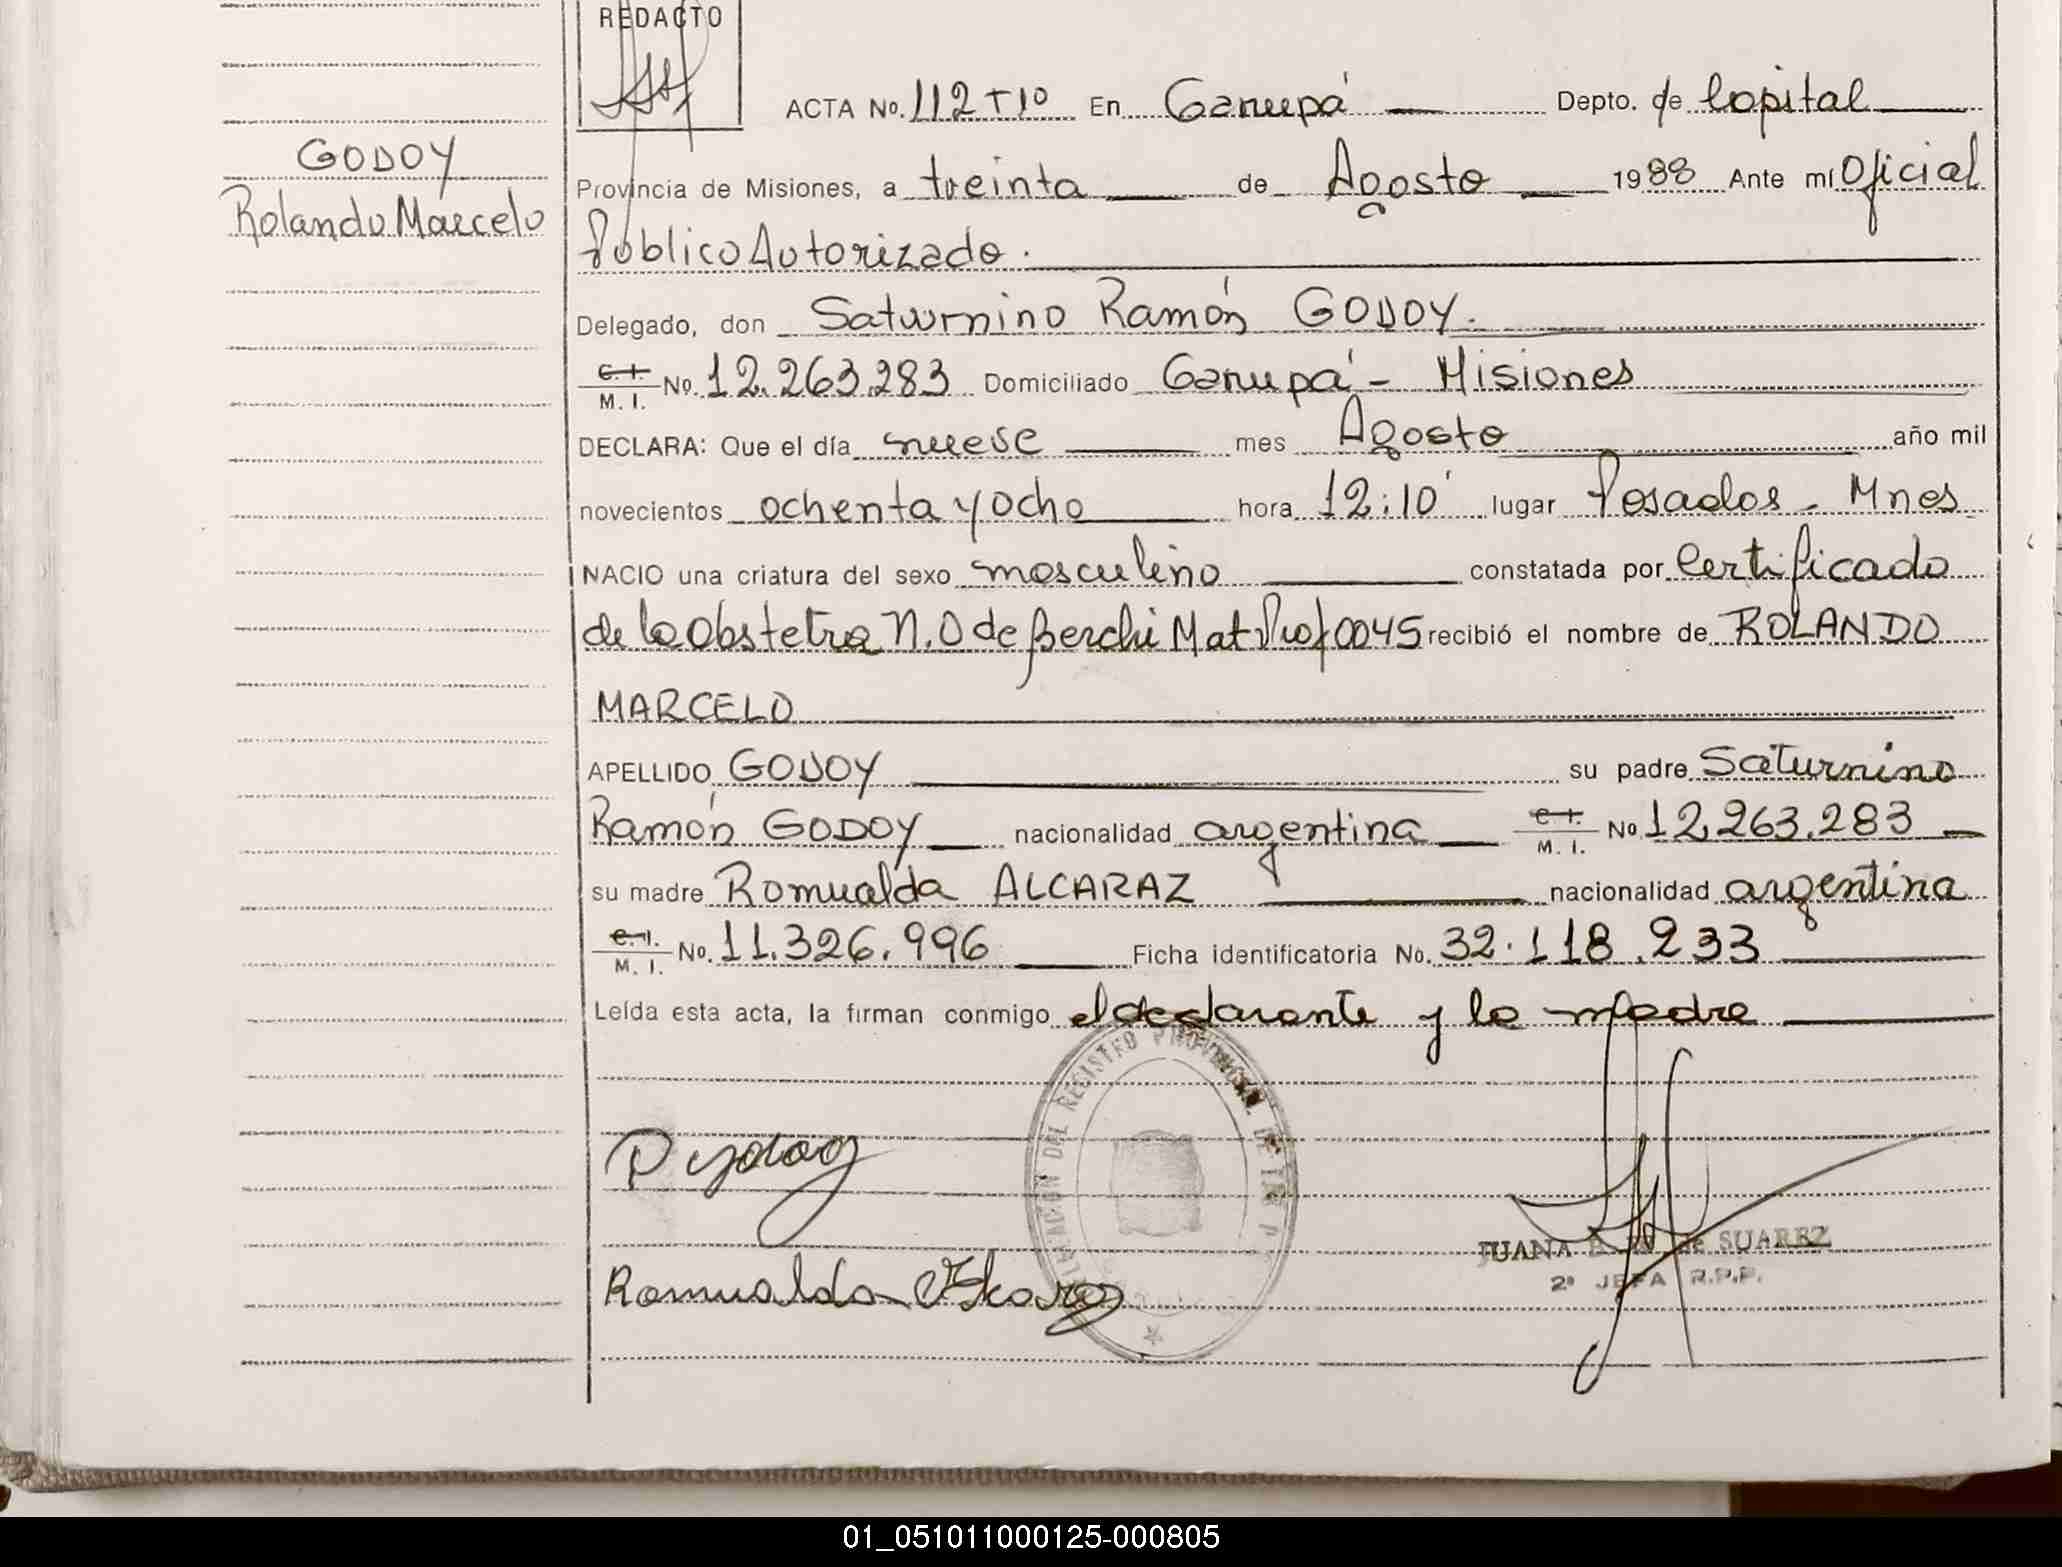 REDACTO
ACTA No. 112 T 1º En Garupá Depto. de Capital
GODOY
Provincia de Misiones, a treinta de Agosto 1988 Ante mí Oficial
Rolando Marcelo
Público Autorizado.
Delegado, don Saturnino Ramón GODOY.
C. I. M. I. No. 12.263.283 Domiciliado Garupá - Misiones
DECLARA: Que el día nueve mes Agosto año mil
novecientos ochenta y ocho hora 12:10' lugar Posadas - Mnes
NACIO una criatura del sexo masculino constatada por Certificado
de la Obstetra N. O de Berchi Mat Prof 0045 recibió el nombre de ROLANDO
MARCELO
APELLIDO GODOY su padre Saturnino
Ramón GODOY nacionalidad argentina C. I. M. I. No. 12.263.283
su madre Romualda ALCARAZ nacionalidad argentina
C. I. M. I. No. 11.326.996 Ficha identificatoria No. 32.118.233
Leída esta acta, la firman conmigo el declarante y la madre
DEL REGISTRO PROVINCIAL DE
JUANA de SUAREZ
2ª JEFA R.P.P.
Romualda Alcaraz
01_051011000125-000805